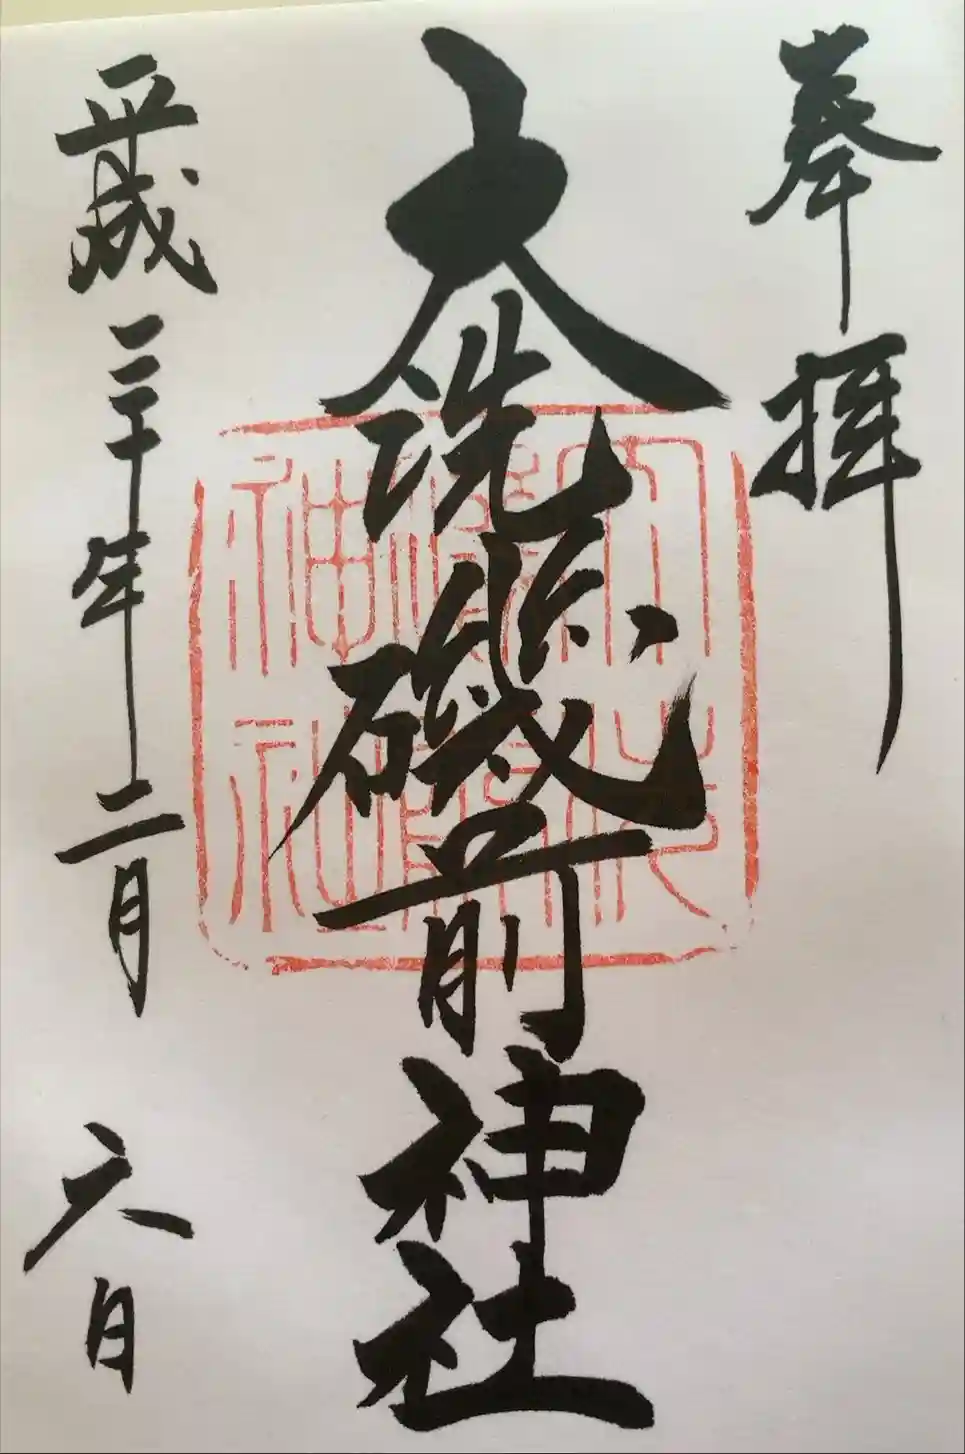 奉拝
大洗磯前神社
平成三十年二月六日
大洗
磯前
神社